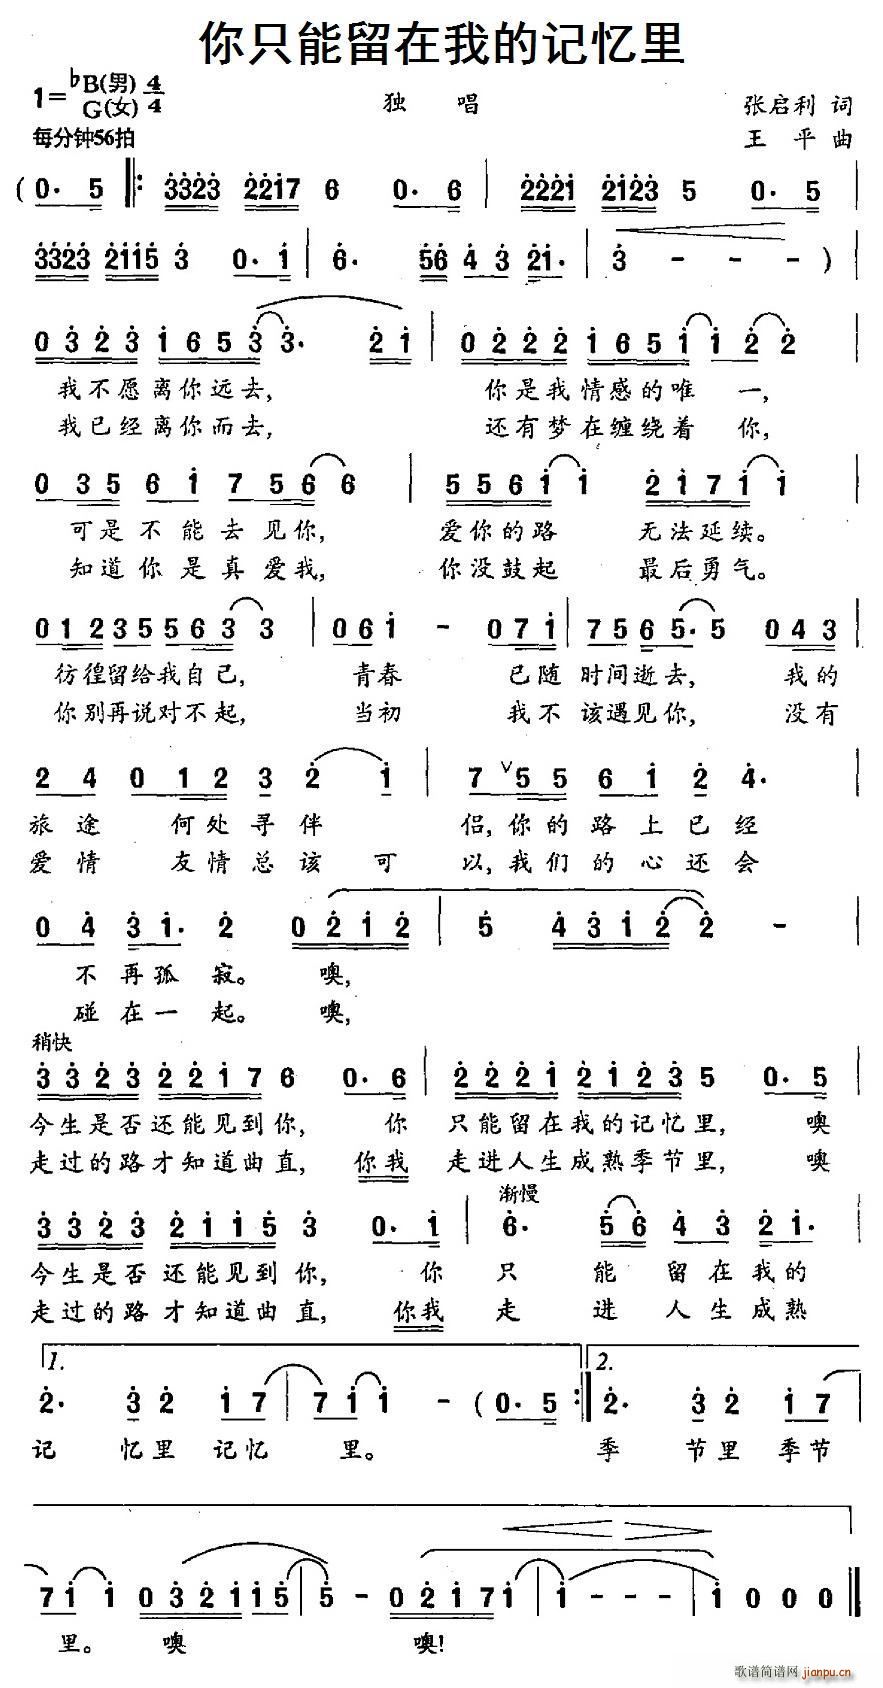 你只能留在我的记忆里
1=♭B(男) 4/4
G(女)
独 唱
张启利 词
每分钟56拍
王 平 曲
(0· 5 ‖: 3323 2217 6 0· 6 | 2221 2123 5 0· 5 |
3323 2115 3 0· 1 | 6· 56 4 3 21· | 3 - - - ) |
0 3 2 3 1 6 5 3 3· 2 1 | 0 2 2 2 1 6 5 1 1 2 2 |
我不愿离你远去, 你是我情感的唯一,
我已经离你而去, 还有梦在缠绕着你,
0 3 5 6 1 7 5 6 6 | 5 5 6 1 1 2 1 7 1 1 |
可是不能去见你, 爱你的路 无法延续。
知道你是真爱我, 你没鼓起 最后勇气。
0 1 2 3 5 5 6 3 3 | 0 6 1 - 0 7 1 | 7 5 6 5· 5 0 4 3 |
彷徨留给我自己, 青春 已随时间逝去, 我的
你别再说对不起, 当初 我不该遇见你, 没有
2 4 0 1 2 3 2 1 | 7 ∨5 5 6 1 2 4· |
旅途 何处寻伴 侣,你的路上已经
爱情 友情总该可 以,我们的心还会
0 4 3 1· 2 0 2 1 2 | 5 4 3 1 2 2 - |
不再孤寂。 噢,
碰在一起。 噢,
稍快
3 3 2 3 2 2 1 7 6 0· 6 | 2 2 2 1 2 1 2 3 5 0· 5 |
今生是否还能见到你, 你 只能留在我的记忆里, 噢
走过的路才知道曲直, 你我 走进人生成熟季节里, 噢
渐慢
3 3 2 3 2 1 1 5 3 0· 1 | 6· 5 6 4 3 2 1· |
今生是否还能见到你, 你 只 能 留在我的
走过的路才知道曲直, 你我 走 进 人生成熟
1. 2.
2· 3 2 1 7 | 7 1 1 - (0· 5 :‖ 2· 3 2 1 7 |
记 忆里记忆 里。 季 节里季节
7 1 1 0 3 2 1 1 5 | 5 - 0 2 1 7 1 | 1 - - - | 1 0 0 0 ‖
里。 噢 噢!
歌谱简谱网 jianpu.cn